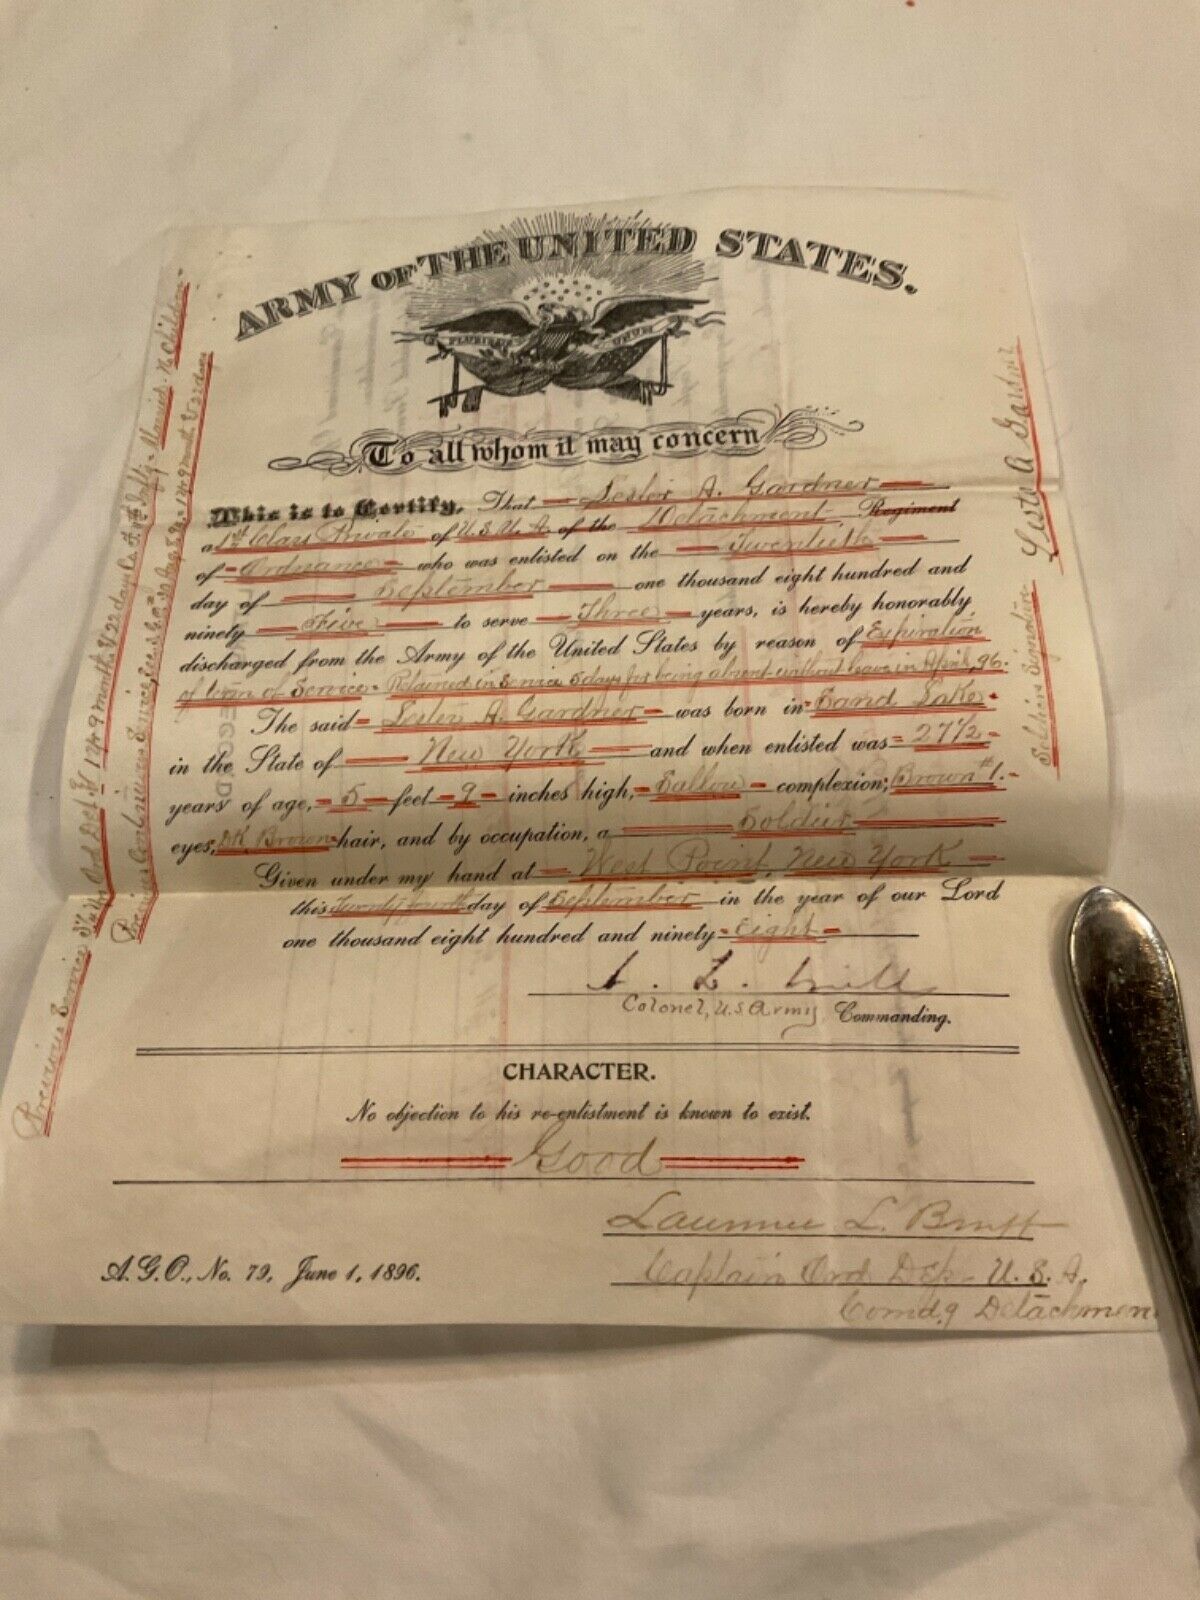 ARMY OF THE UNITED STATES.
PLURIBUS UNUM
To all whom it may concern
This is to Certify, That Lester A. Gardner
a 1st Class Private of U.S.A. of the Detachment Regiment
of Ordnance who was enlisted on the Twentieth
day of September one thousand eight hundred and
ninety Five to serve Three years, is hereby honorably
discharged from the Army of the United States by reason of Expiration
of term of Service - Retained in Service 5 days for being absent without leave in April, 96.
The said Lester A. Gardner was born in Sand Lake
in the State of New York and when enlisted was 27 1/2
years of age, 5 feet 9 inches high, Sallow complexion; Brown #1.
eyes, DK. Brown hair, and by occupation, a Soldier
Given under my hand at West Point, New York
this Twenty fourth day of September in the year of our Lord
one thousand eight hundred and ninety Eight
A. L. Mills
Colonel, U.S. Army Commanding.
CHARACTER.
No objection to his re-enlistment is known to exist.
Good
Lawrence L. Bruff
Captain Ord Dep U.S.A.
Comd.g Detachment
A.G.O., No. 79, June 1, 1896.
Previous Service Ord Det 9 months & 22 days Co. Infty - Married - No Children
Previous Continuous Service
Soldiers Signature Lester A Gardner